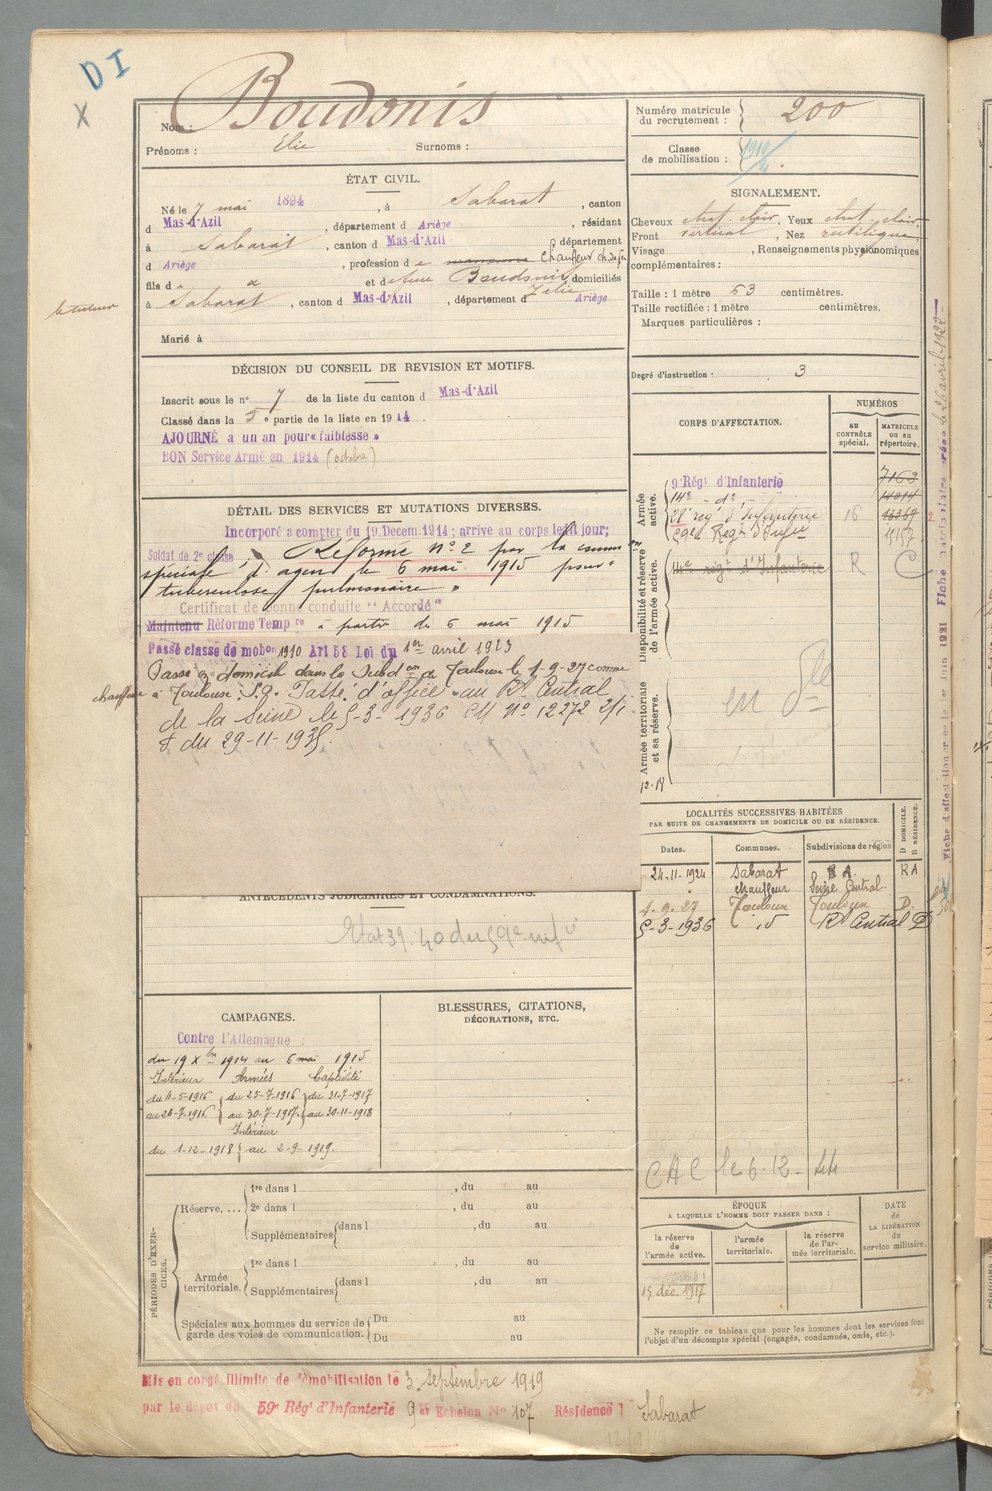 DI
X
Nom : Boudonis
Prénoms : Élie Surnoms :
ÉTAT CIVIL.
Né le 7 mai 1894, à Sabarat, canton
d Mas-d'Azil, département d Ariège, résidant
à Sabarat, canton d Mas-d'Azil, département
d Ariège, profession de chauffeur
fils d et de feue Boudonis Zélie, domiciliés
à Sabarat, canton d Mas-d'Azil, département d Ariège
Marié à
DÉCISION DU CONSEIL DE REVISION ET MOTIFS.
Inscrit sous le n° 7 de la liste du canton d Mas-d'Azil
Classé dans la 5e partie de la liste en 1914
AJOURNÉ à un an pour « faiblesse »
BON Service Armé en 1914 (octobre)
DÉTAIL DES SERVICES ET MUTATIONS DIVERSES.
Incorporé a compter du 19 Decem. 1914 ; arrive au corps le dit jour;
Soldat de 2e classe. Réformé n° 2 par la comm on
spéciale d'agen le 6 mai 1915 pour "
tuberculose pulmonaire "
Certificat de bonne conduite "Accordé"
Maintenu Réforme Temp re à partir du 6 mai 1915
Passé classe de mob on 1910 Art 58 Loi du 1er avril 1923
Passé à domicile dans la Subd on de Toulouse le 1-9-27 comme
chauffeur à Toulouse. S.Q. Passé d'office au Rt Central
de la Seine le 5-3-1936 CM N° 12272 2/1
du 29-11-1935
ANTÉCÉDENTS JUDICIAIRES ET CONDAMNATIONS.
Etat 39. 40 du 59e
CAMPAGNES.
Contre l'Allemagne :
du 19 Xbre 1914 au 6 mai 1915
Intérieur Armées Captivité
du 11-5-1916 du 25-7-1916 du 31-7-1917
au 24-7-1916 au 30-7-1917 au 30-11-1918
Intérieur
du 1-12-1918 au 2-9-1919.
BLESSURES, CITATIONS,
DÉCORATIONS, ETC.
PÉRIODES D'EXERCICES.
Réserve....
1re dans l , du au
2e dans l , du au
Supplémentaires dans l , du au
Armée territoriale.
1re dans l , du au
Supplémentaires dans l , du au
Spéciales aux hommes du service de
garde des voies de communication.
Du au
Du au
Mis en congé illimité de démobilisation le 3 septembre 1919
par le dépôt du 59e Régt d'Infanterie 9er Echelon N° 107 Résidence : Sabarat
Numéro matricule
du recrutement : 200
Classe
de mobilisation : 1910
SIGNALEMENT.
Cheveux chat. clair, Yeux chat. clair
Front vertical, Nez rectiligne
Visage , Renseignements physionomiques
complémentaires :
Taille : 1 mètre 63 centimètres.
Taille rectifiée : 1 mètre centimètres.
Marques particulières :
Degré d'instruction : 3
CORPS D'AFFECTATION.
NUMÉROS
AU CONTRÔLE spécial.
MATRICULE OU AU répertoire.
Armée active.
9e Régt d'Infanterie 7163
14e - d°
21e régt d'Infanterie 16
59e Régt d'Infie 15157
Disponibilité et réserve de l'armée active.
14e régt d'Infanterie R C
Armée territoriale et sa réserve.
LOCALITÉS SUCCESSIVES HABITÉES
PAR SUITE DE CHANGEMENTS DE DOMICILE OU DE RÉSIDENCE.
Dates. Communes. Subdivisions de région D DOMICILE. R RÉSIDENCE.
24-11-1924 Sabarat RA
chauffeur Seine Central
1-9-27 Toulouse Toulouse D.
5-3-1936 id Rt Central D
CAC le 6-12-
ÉPOQUE
A LAQUELLE L'HOMME DOIT PASSER DANS :
la réserve de l'armée active.
l'armée territoriale.
la réserve de l'armée territoriale.
DATE de LA LIBÉRATION du service militaire.
15 déc. 1917
Ne remplir ce tableau que pour les hommes dont les services font
l'objet d'un décompte spécial (engagés, condamnés, omis, etc.).